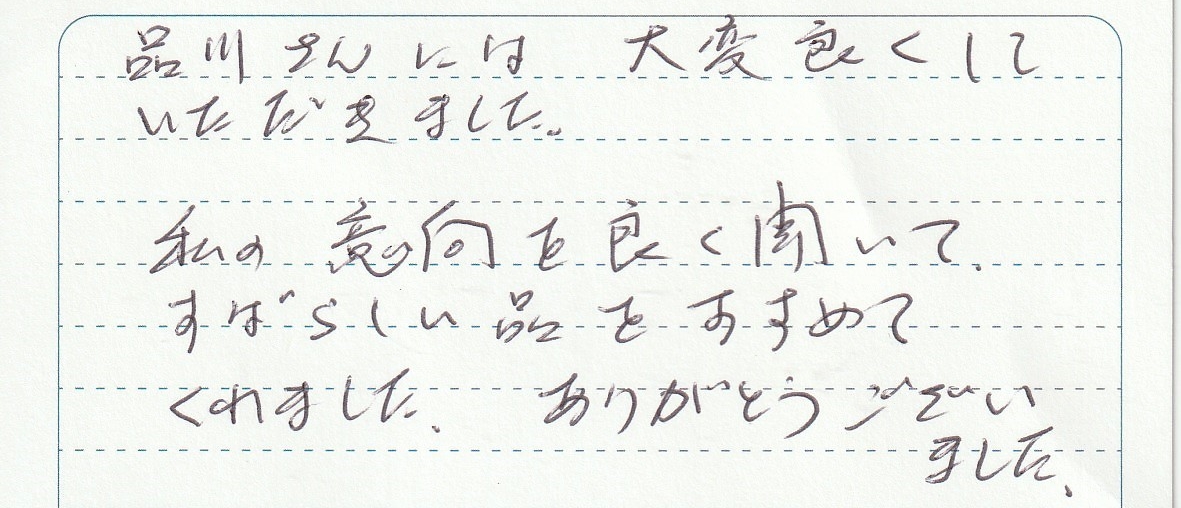 品川さんには 大変良くして
いただきました。
私の意向を良く聞いて、
すばらしい品をすすめて
くれました。 ありがとうござい
ました、